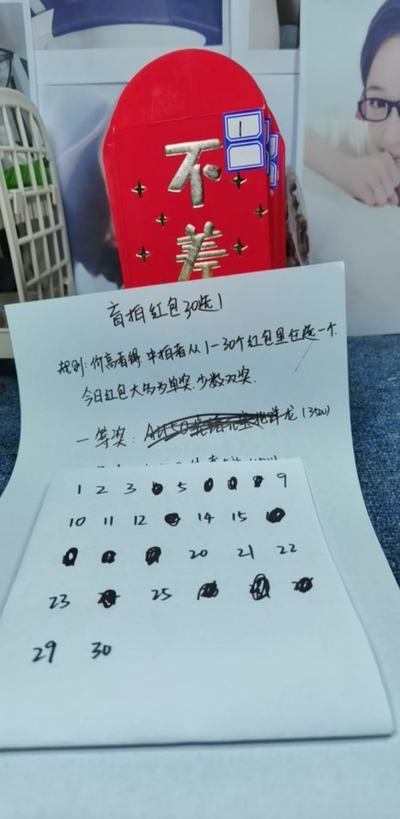 1
不
差
盲拍红包30选1
规则:价高者得.中拍者从1一30个红包里任选一个.
今日红包大多为单奖.少数双奖.
一等奖:龙(3500)
1 2 3 5 9
10 11 12 14 15
20 21 22
23 25
29 30